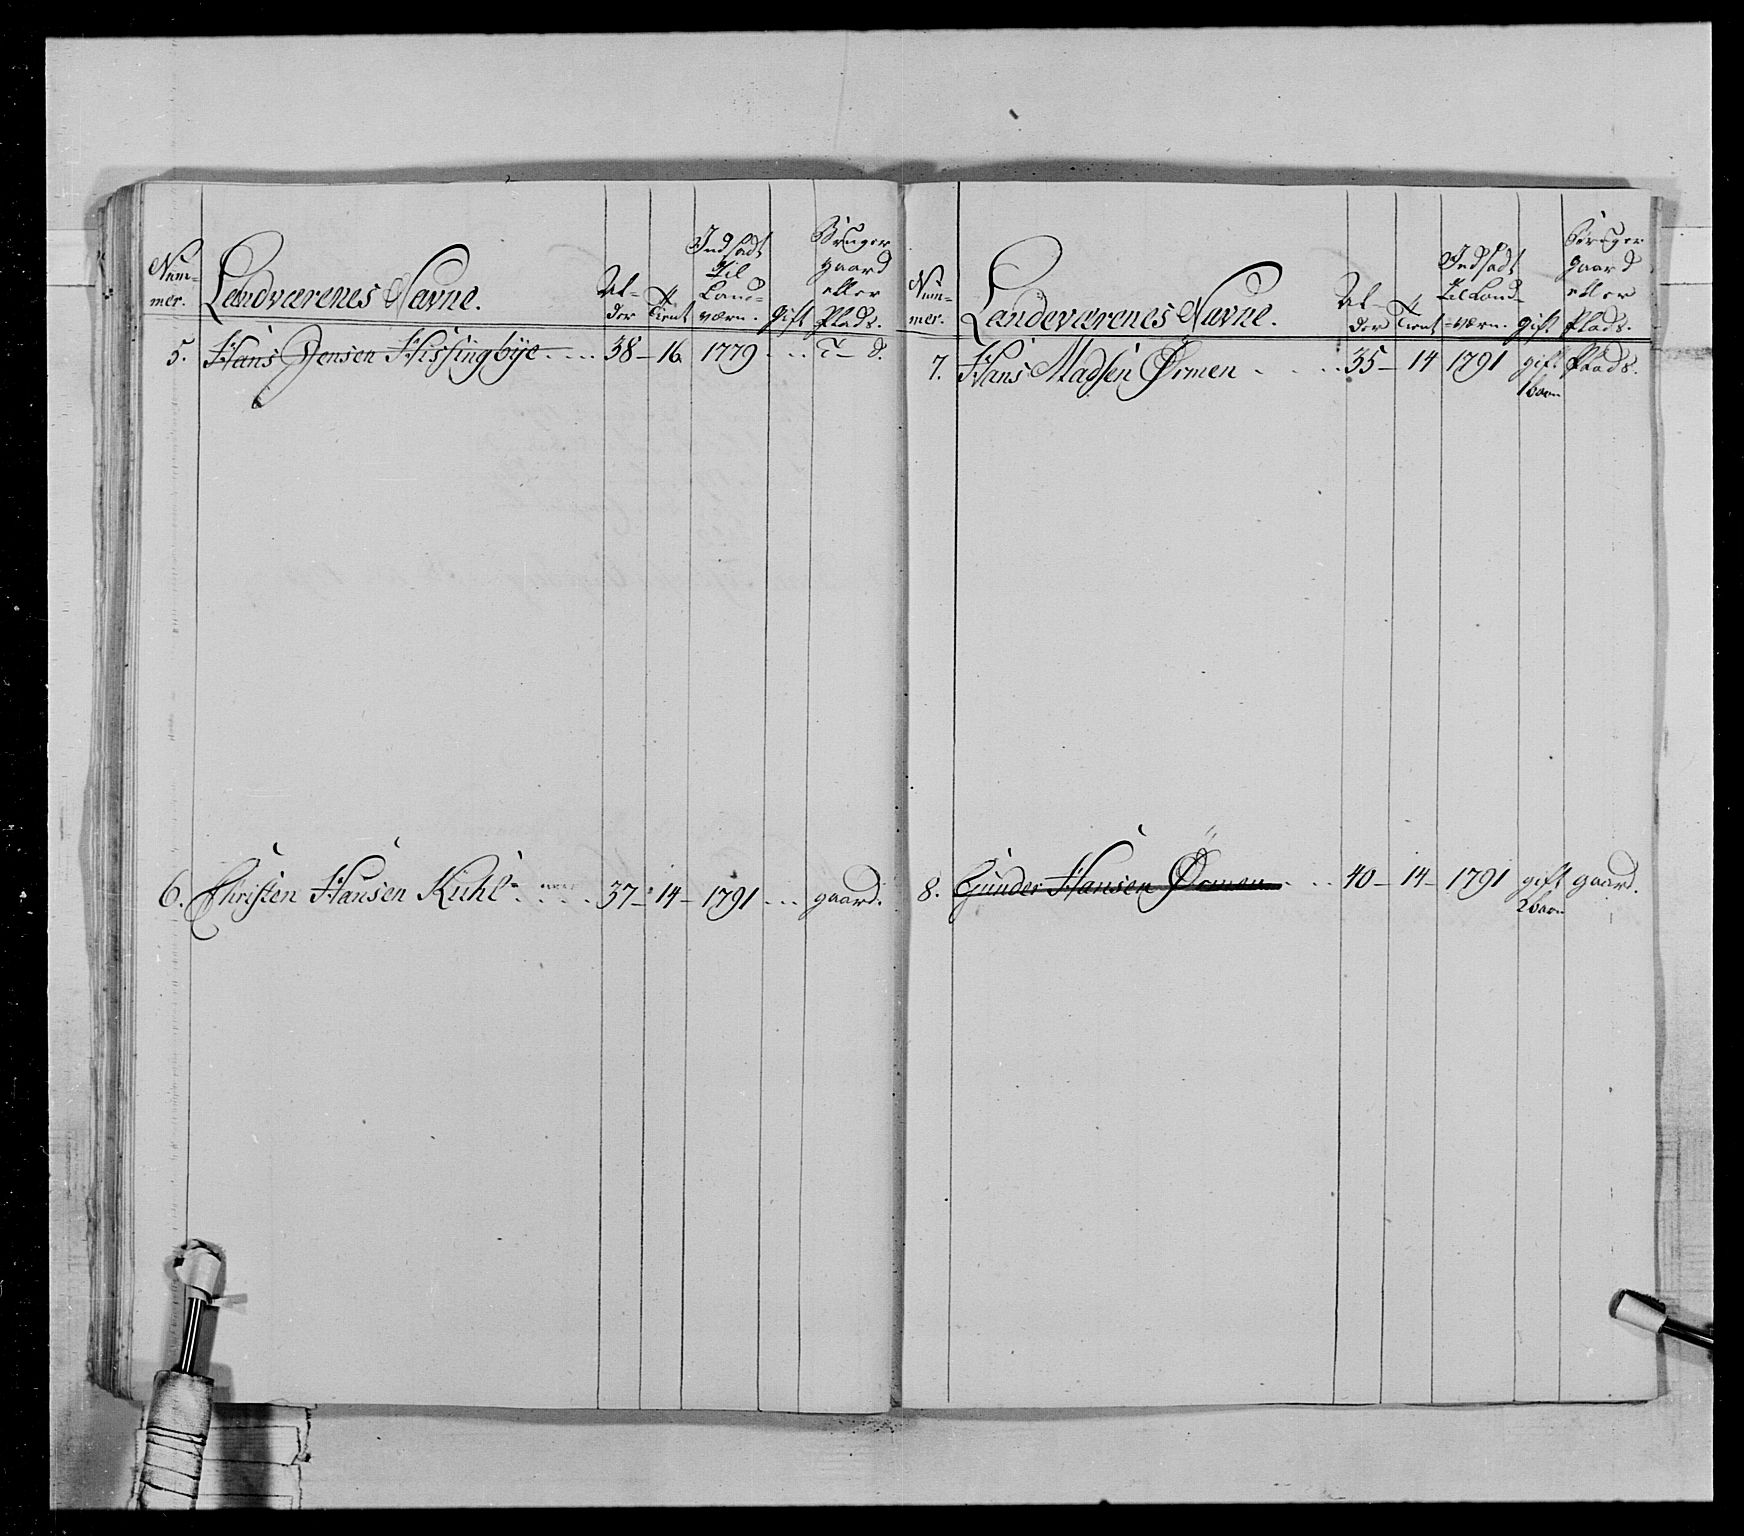 Num-
mer.
Landværenes Navne.
Al-
der
Tient
Indsadt
til
Land-
værn.
gift
Bruger
gaard
eller
Plads.
5. Hans Jensen Hissingbye 38 - 16 1779
6. Christen Hansen Kihl 37 - 14 - 1791 gaard.
Num-
mer.
Landeværenes Navne.
Al-
der
Tient
Indsadt
til Land-
værn.
gift
Bruger
gaard
eller
Plads.
7. Hans Madsen Ørmen 35 - 14 1791 gift Plads.
1 barn
8. Gunder Hansen Ørmen 40 - 14 - 1791 gift gaard.
2 barn